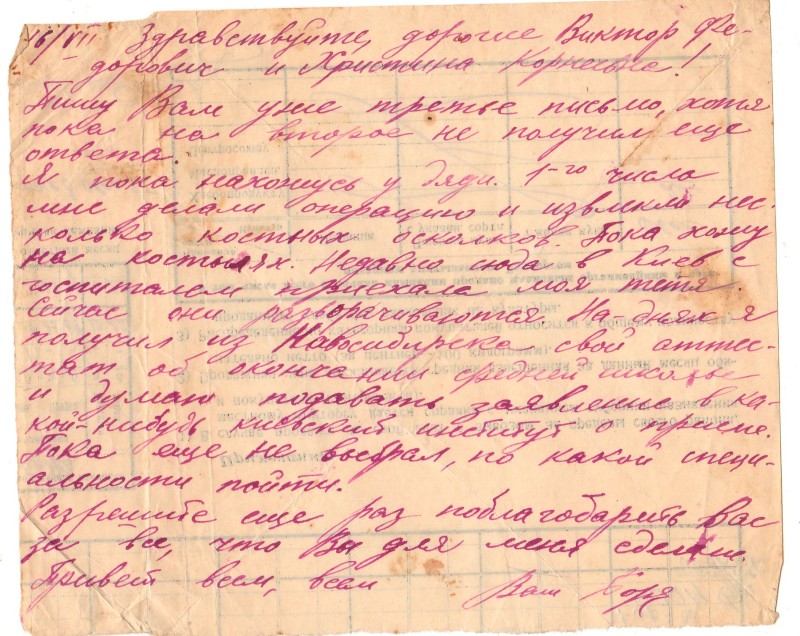 16/VII Здравствуйте, дорогие Виктор Фе-
дорович и Христина Корнеевна!
Пишу Вам уже третье письмо, хотя
пока на второе не получил еще
ответа.
Я пока нахожусь у дяди. 1-го числа
мне делали операцию и извлекли нес-
колько костных осколков. Пока хожу
на костылях. Недавно сюда в Киев с
госпиталем приехала моя тетя.
Сейчас они разворачиваются. На-днях я
получил из Новосибирска свой аттес-
тат об окончании средней школы
и думаю подавать заявление в ка-
кой-нибудь киевский институт
Пока еще не выбрал, по какой специ-
альности пойти.
Разрешите еще раз поблагодарить Вас
за все, что Вы для меня сделали.
Привет всем, всем Ваш Боря